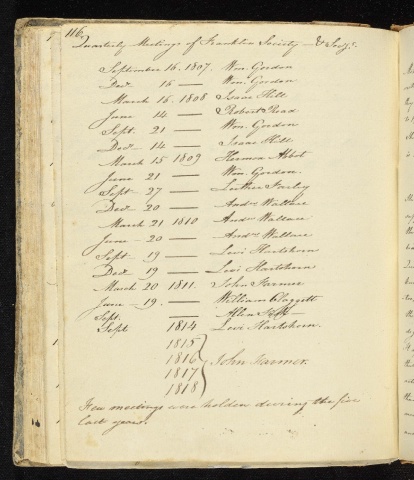 116.
Quarterly Meetings of Franklin Society — & Secy's.
September 16. 1807. Wm. Gordon
Decr. 16 — Wm. Gordon
March 16. 1808 Isaac Hill
June 14 — Robert Read
Sept. 21 — Wm. Gordon
Decr. 14 — Isaac Hill
March 15 1809 Herman Abbot
June 21 — Wm. Gordon.
Sept. 27 — Luther Farley
Decr. 20 — Andw. Wallace
March 21 1810 Andw. Wallace
June 20 — Andw. Wallace
Sept. 19 — Levi Hartshorn
Decr. 19 — Levi Hartshorn
March 20 1811. John Farmer
June 19. — William Claggett
Sept. — Allen
Sept 1814 Levi Hartshorn.
1815
1816 John Farmer.
1817
1818
Few meetings were holden during the five
last years.